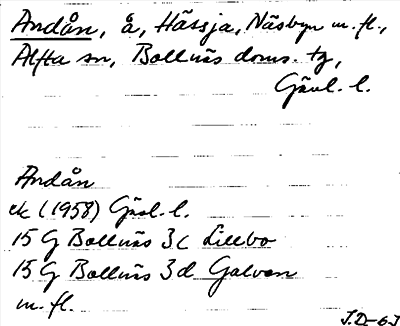 Andån, å, Hässja, Näsbyn m. fl.,
Alfta sn, Bollnäs doms. tg,
Gävl. l.
Andån
ek (1958) Gävl. l.
15 G Bollnäs 3c Lillbo
15 G Bollnäs 3d Galven
m. fl.